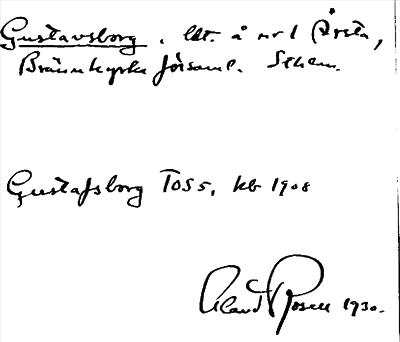 Gustavsborg. lht. å nr 1 Årsta,
Brännkyrka församl. Sthlm.
Gustafsborg TOS 5, kb 1908
Rosell 1930.